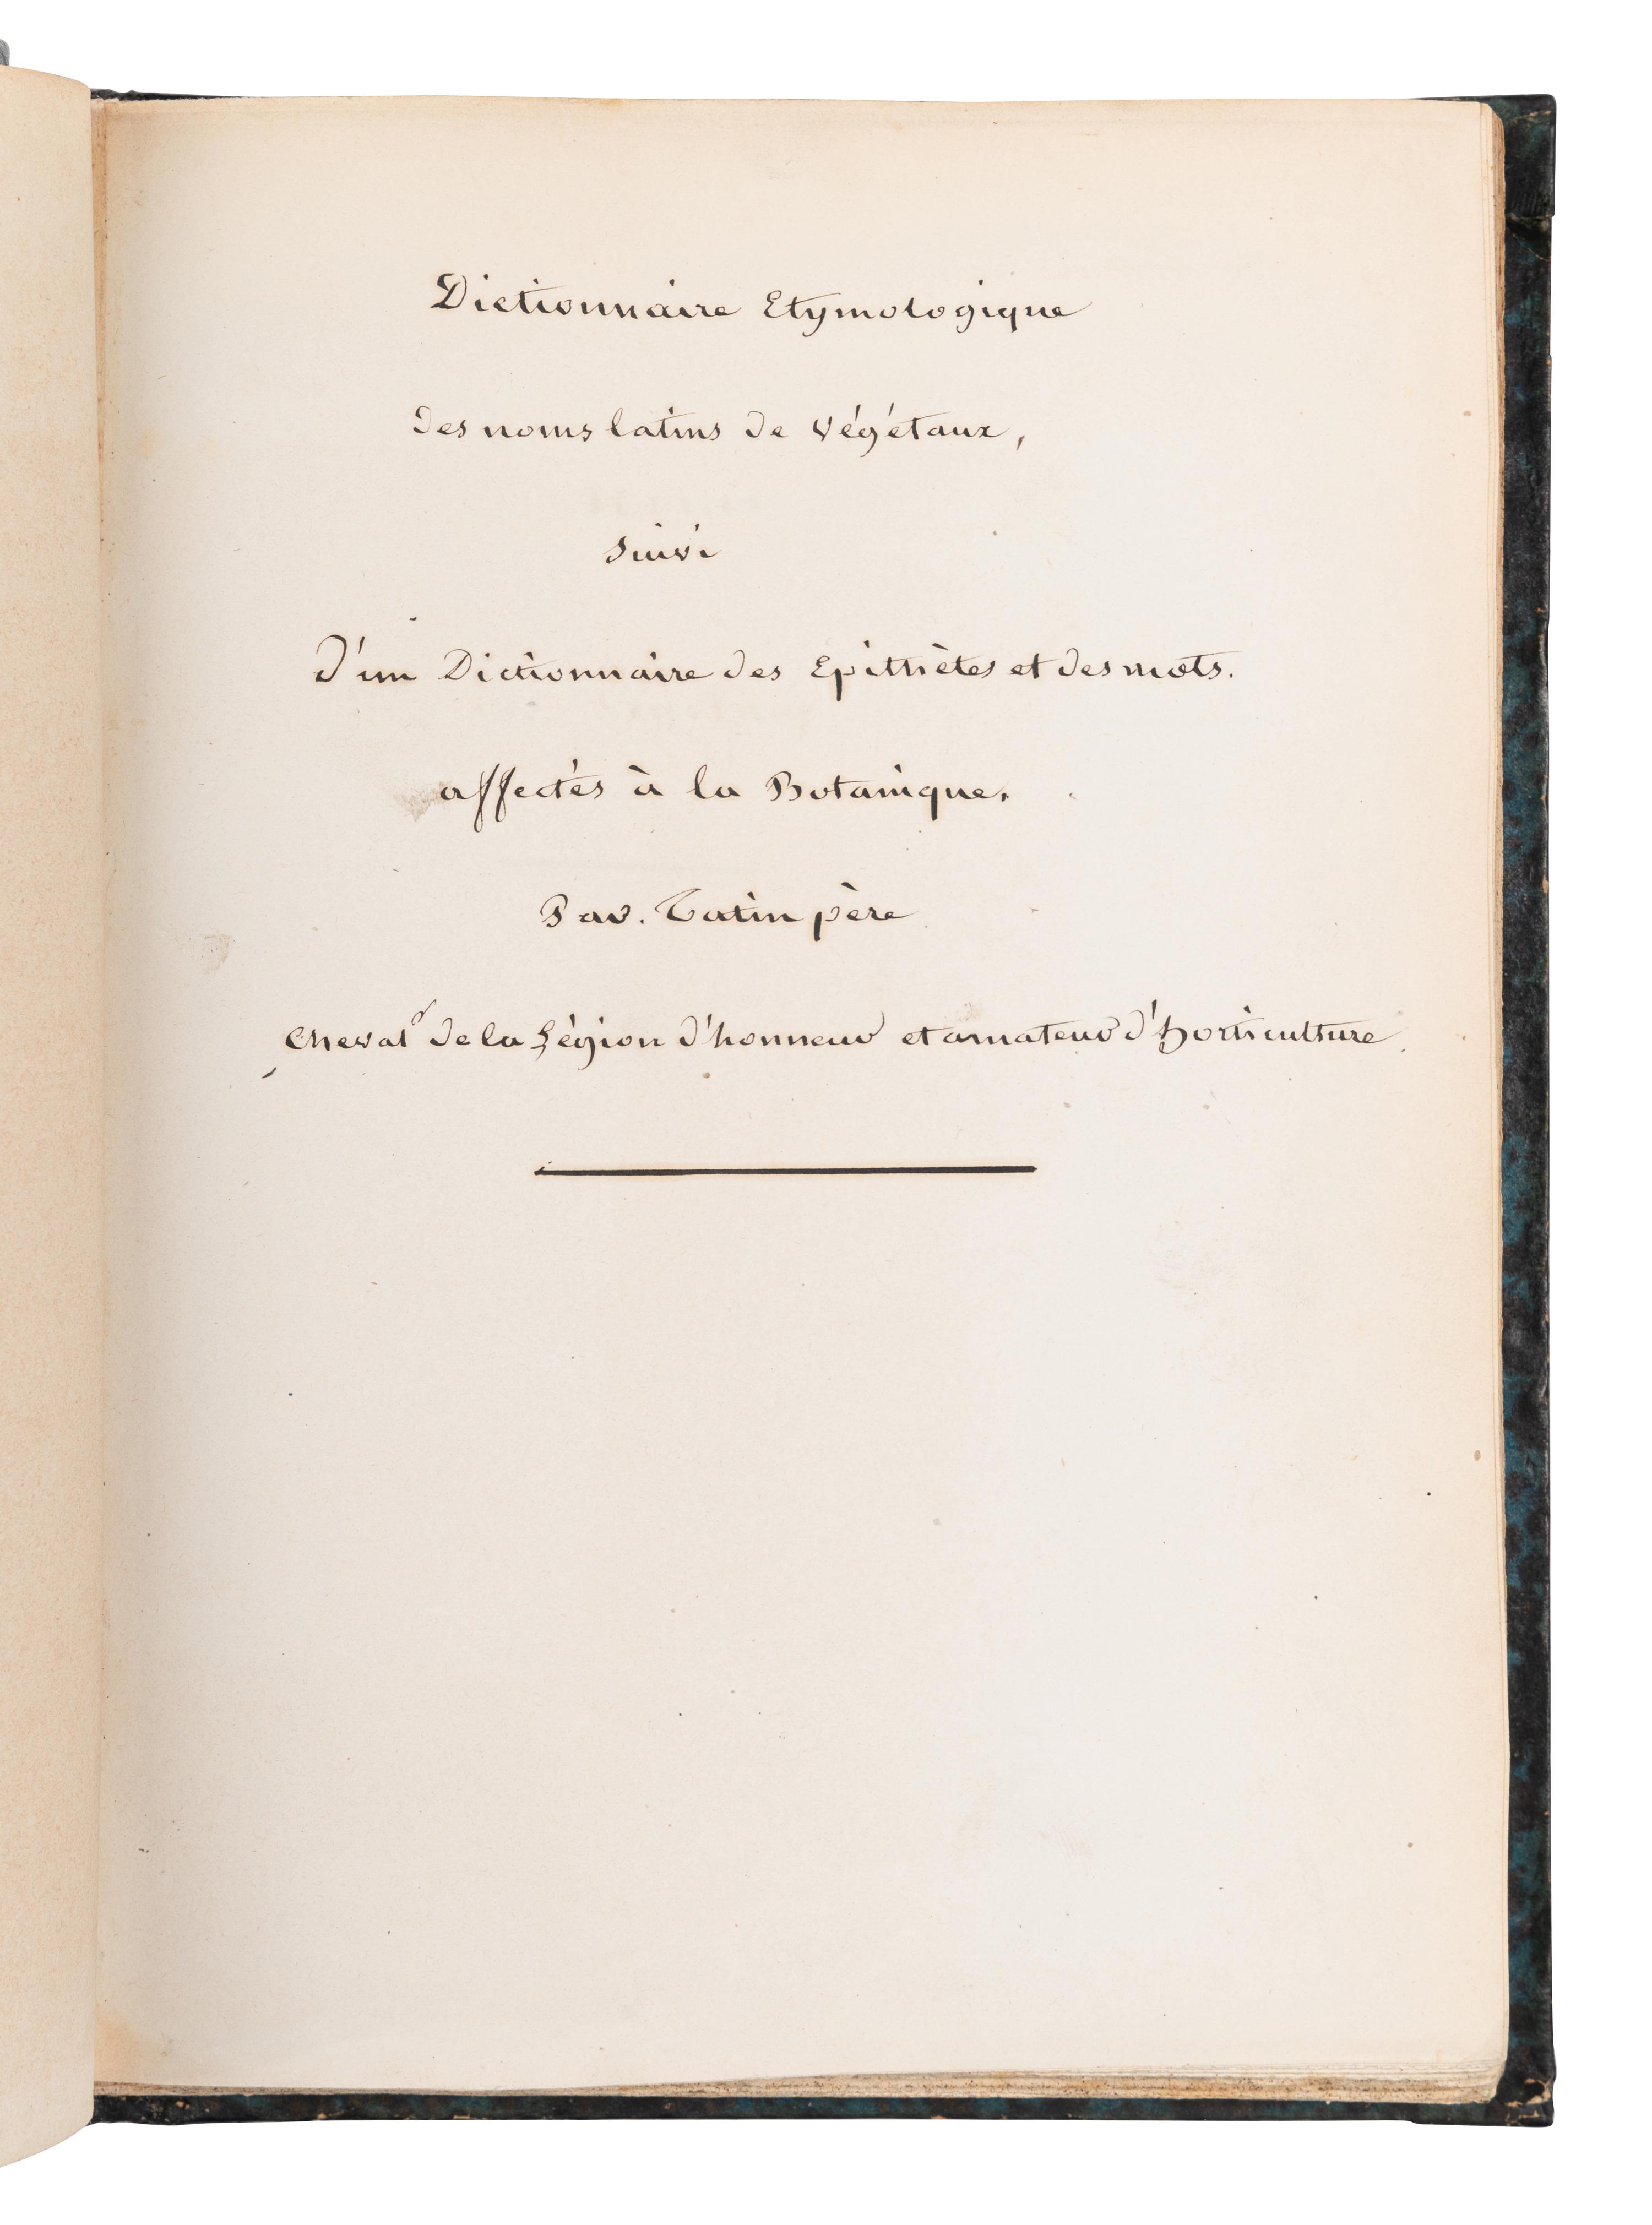 Dictionnaire Etymologique
des noms latins de végétaux,
suivi
d'un Dictionnaire des Epithètes et des mots.
affectés à la Botanique.
Par. Tatin père
Cheval.r de la Légion d'honneur et amateur d'horticulture.